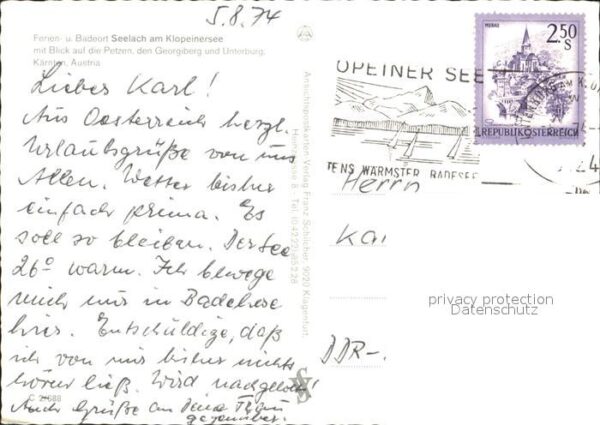 5.8.74
Ferien- u. Badeort Seelach am Klopeinersee
mit Blick auf die Petzen, den Georgiberg und Unterburg,
Kärnten, Austria
Lieber Karl!
Aus Oesterreich herzl.
Urlaubsgrüße von uns
Allen. Wetter bisher
einfach prima. Es
soll so bleiben. Der See
26° warm. Ich bewege
mich nur in Badehose
hier. Entschuldige, daß
ich von mir bisher nichts
hören ließ. Wird nachgeholt!
Auch Grüße an Deine Frau
C 2/688
Ansichtspostkarten Verlag Franz Schilcher, 9020 Klagenfurt,
OPEINER SEE
TENS WÄRMSTER BADESEE
2.50
S
REPUBLIK ÖSTERREICH
Herrn
Kar
DDR-
privacy protection
Datenschutz